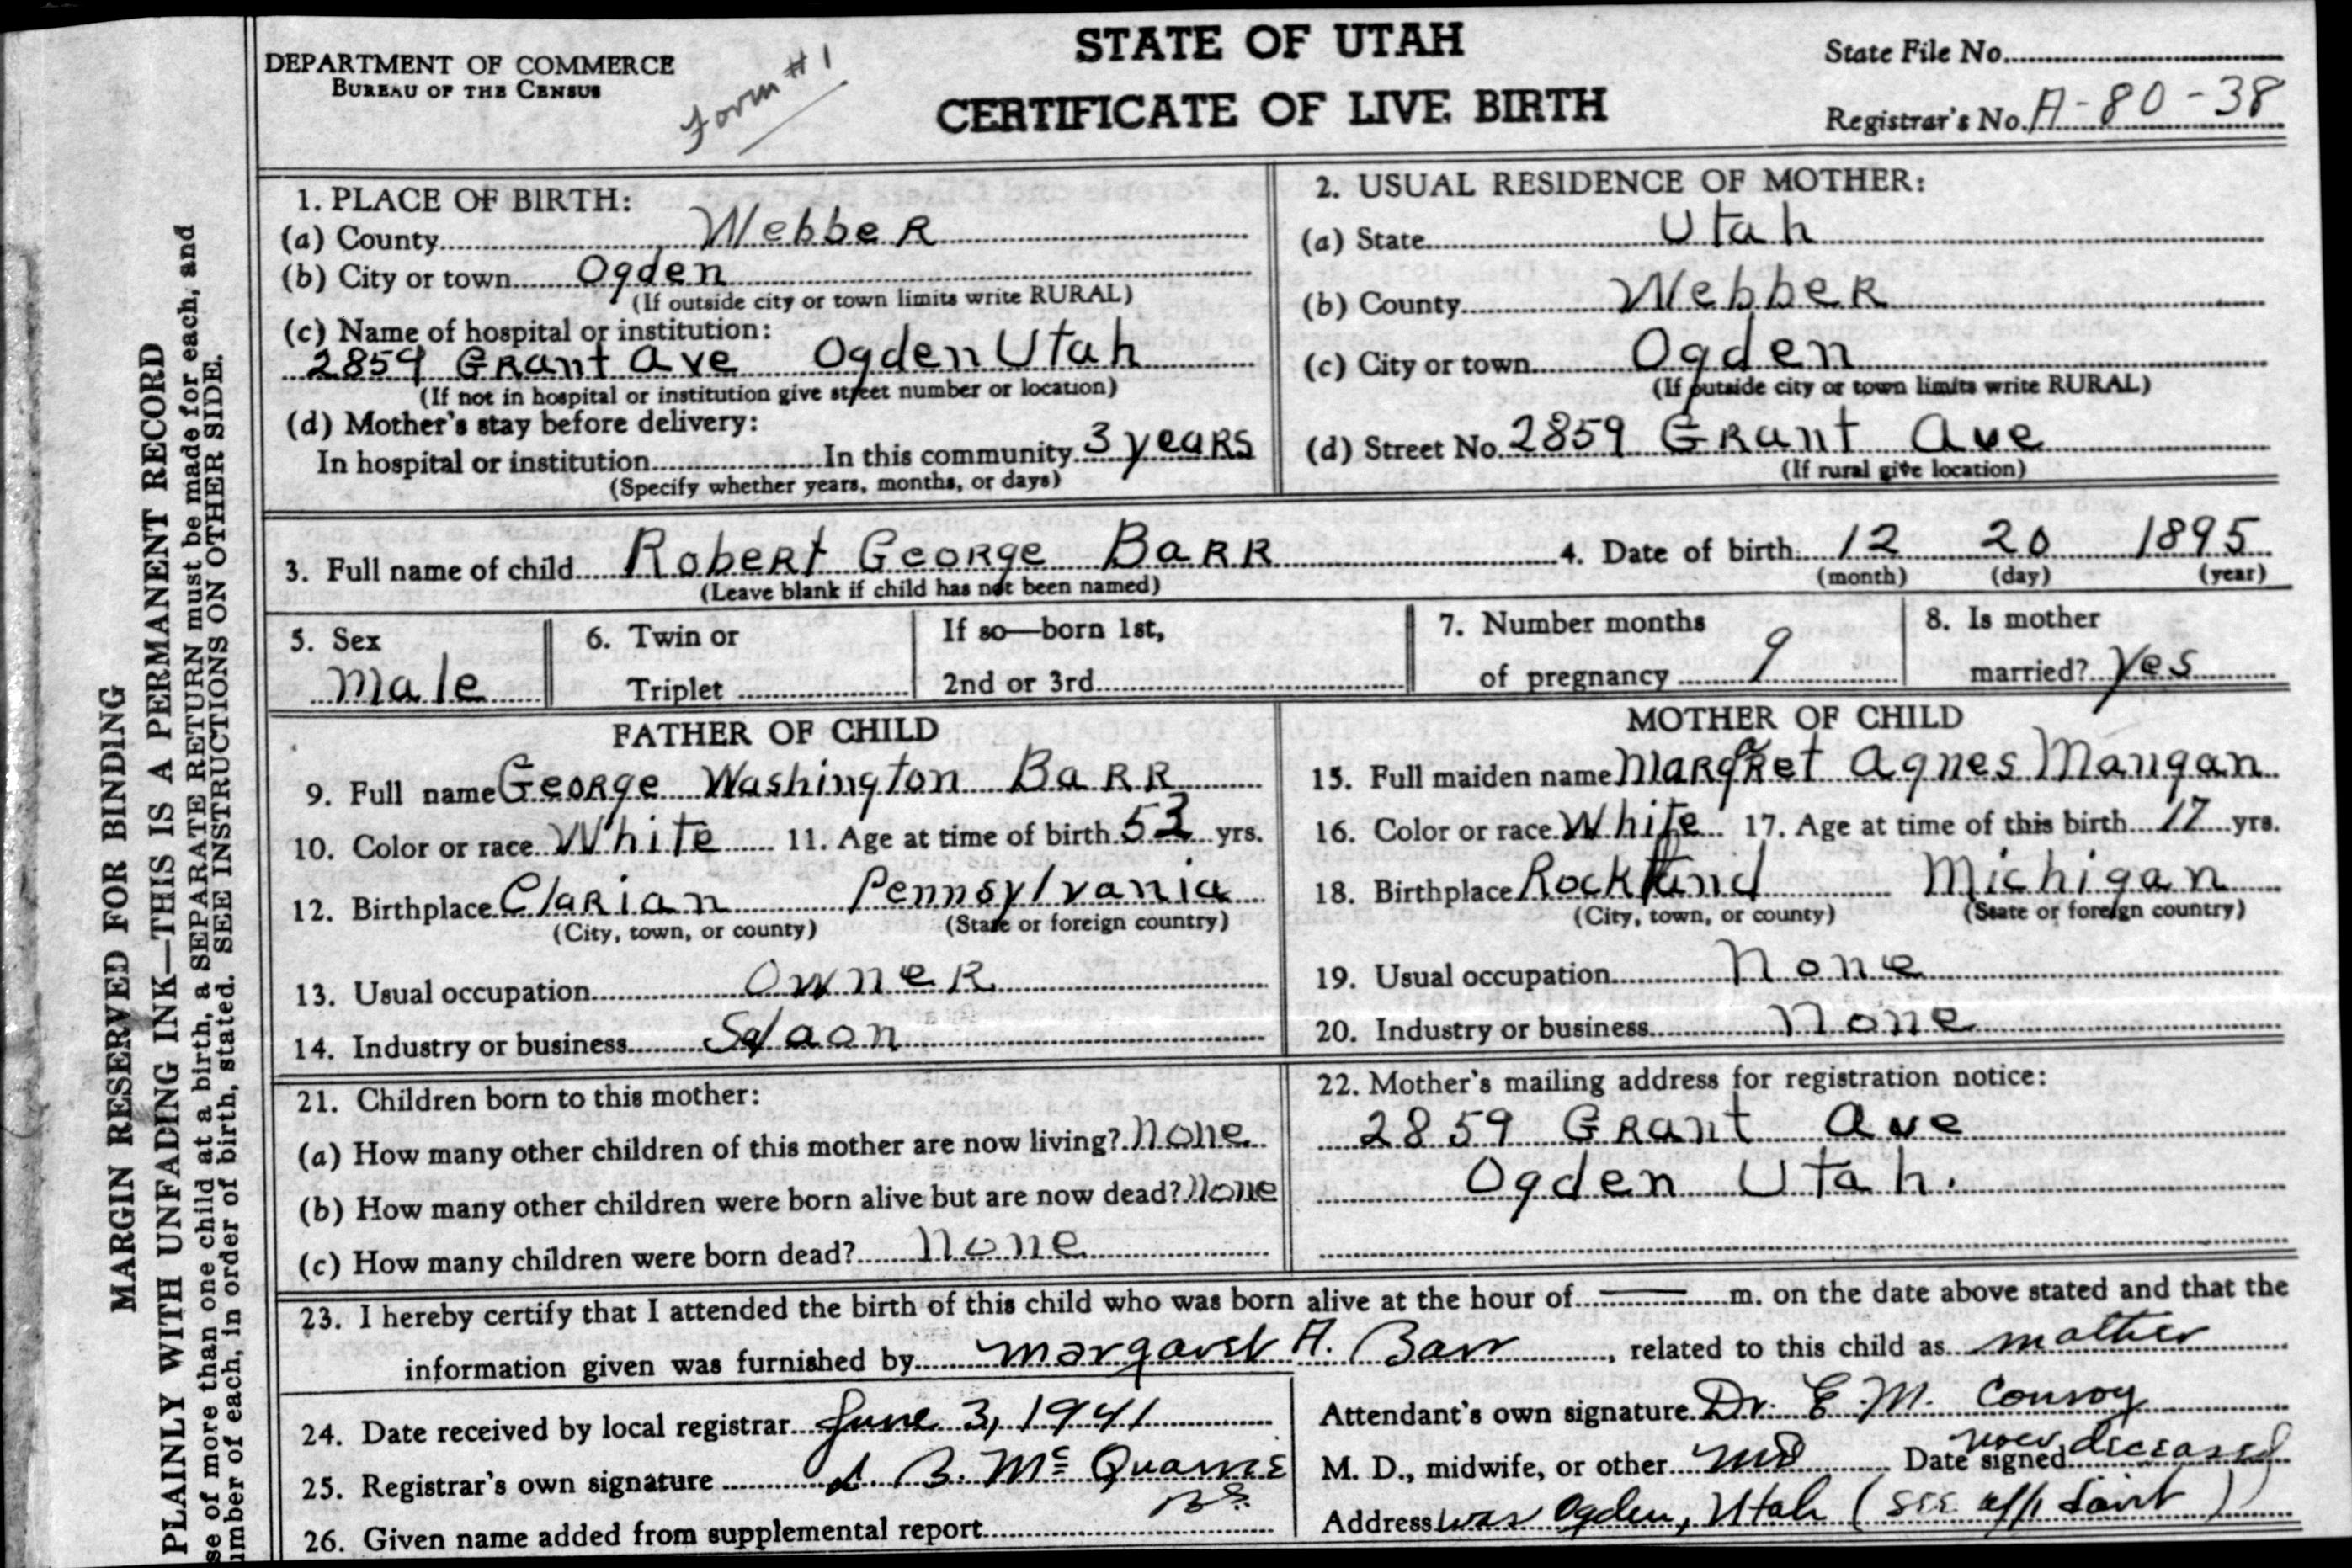 DEPARTMENT OF COMMERCE
BUREAU OF THE CENSUS
Form #1
STATE OF UTAH
CERTIFICATE OF LIVE BIRTH
State File No.
Registrar's No. A-80-38
MARGIN RESERVED FOR BINDING
PLAINLY WITH UNFADING INK—THIS IS A PERMANENT RECORD
se of more than one child at a birth, a SEPARATE RETURN must be made for each, and
umber of each, in order of birth, stated. SEE INSTRUCTIONS ON OTHER SIDE.
1. PLACE OF BIRTH:
(a) County Webber
(b) City or town Ogden
(If outside city or town limits write RURAL)
(c) Name of hospital or institution:
2859 Grant Ave Ogden Utah
(If not in hospital or institution give street number or location)
(d) Mother's stay before delivery:
In hospital or institution In this community 3 years
(Specify whether years, months, or days)
2. USUAL RESIDENCE OF MOTHER:
(a) State Utah
(b) County Webber
(c) City or town Ogden
(If outside city or town limits write RURAL)
(d) Street No. 2859 Grant Ave
(If rural give location)
3. Full name of child Robert George Barr 4. Date of birth 12 20 1895
(Leave blank if child has not been named) (month) (day) (year)
5. Sex Male
6. Twin or
Triplet
If so—born 1st,
2nd or 3rd
7. Number months
of pregnancy 9
8. Is mother
married? Yes
FATHER OF CHILD
9. Full name George Washington Barr
10. Color or race White 11. Age at time of birth 53 yrs.
12. Birthplace Clarian Pennsylvania
(City, town, or county) (State or foreign country)
13. Usual occupation Owner
14. Industry or business Salaon
MOTHER OF CHILD
15. Full maiden name Margaret Agnes Mangan
16. Color or race White 17. Age at time of this birth 17 yrs.
18. Birthplace Rockland Michigan
(City, town, or county) (State or foreign country)
19. Usual occupation None
20. Industry or business None
21. Children born to this mother:
(a) How many other children of this mother are now living? None
(b) How many other children were born alive but are now dead? None
(c) How many children were born dead? None
22. Mother's mailing address for registration notice:
2859 Grant Ave
Ogden Utah.
23. I hereby certify that I attended the birth of this child who was born alive at the hour of — m. on the date above stated and that the
information given was furnished by Margaret A. Barr, related to this child as mother
24. Date received by local registrar June 3, 1941
25. Registrar's own signature B. Mc Quarrie
26. Given name added from supplemental report
Attendant's own signature Dr. E. M. Conroy
M. D., midwife, or other MD Date signed now deceased
Address was Ogden, Utah (see affidavit)